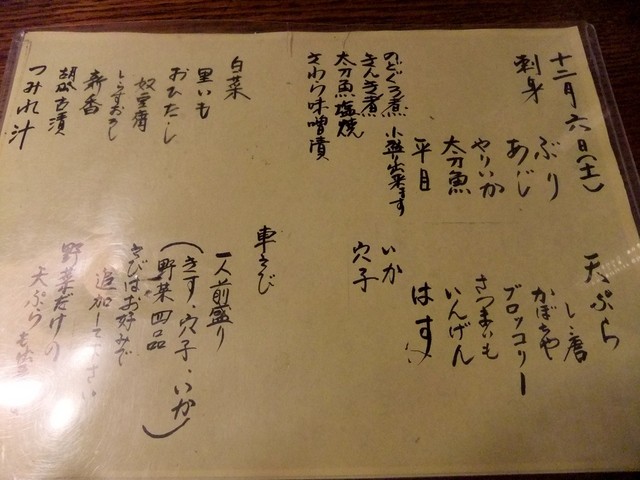 十二月六日(土)
刺身
ぶり
あじ
やりいか
太刀魚
平目
のどぐろ煮 小盛り出来ます
きんき煮
太刀魚塩焼
さわら味噌漬
白菜
里いも
おひたし
奴豆腐
しらすおろし
新香
胡瓜古漬
つみれ汁
天ぷら
しし唐
かぼちゃ
ブロッコリー
さつまいも
いんげん
はす
いか
穴子
車えび
一人前盛り
(きす・穴子・いか
野菜四品)
えびはお好みで
追加して下さい
野菜だけの
天ぷらも